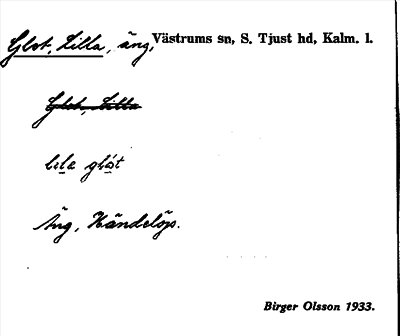 Glot, Lilla, äng, Västrums sn, S. Tjust hd, Kalm. l.
Glot, Lilla
lila glót
Äng, Händelöp.
Birger Olsson 1933.